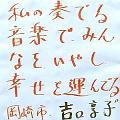 私の奏でる
音楽でみん
なをいやし
幸せを運んでる
岡崎市 吉口享子